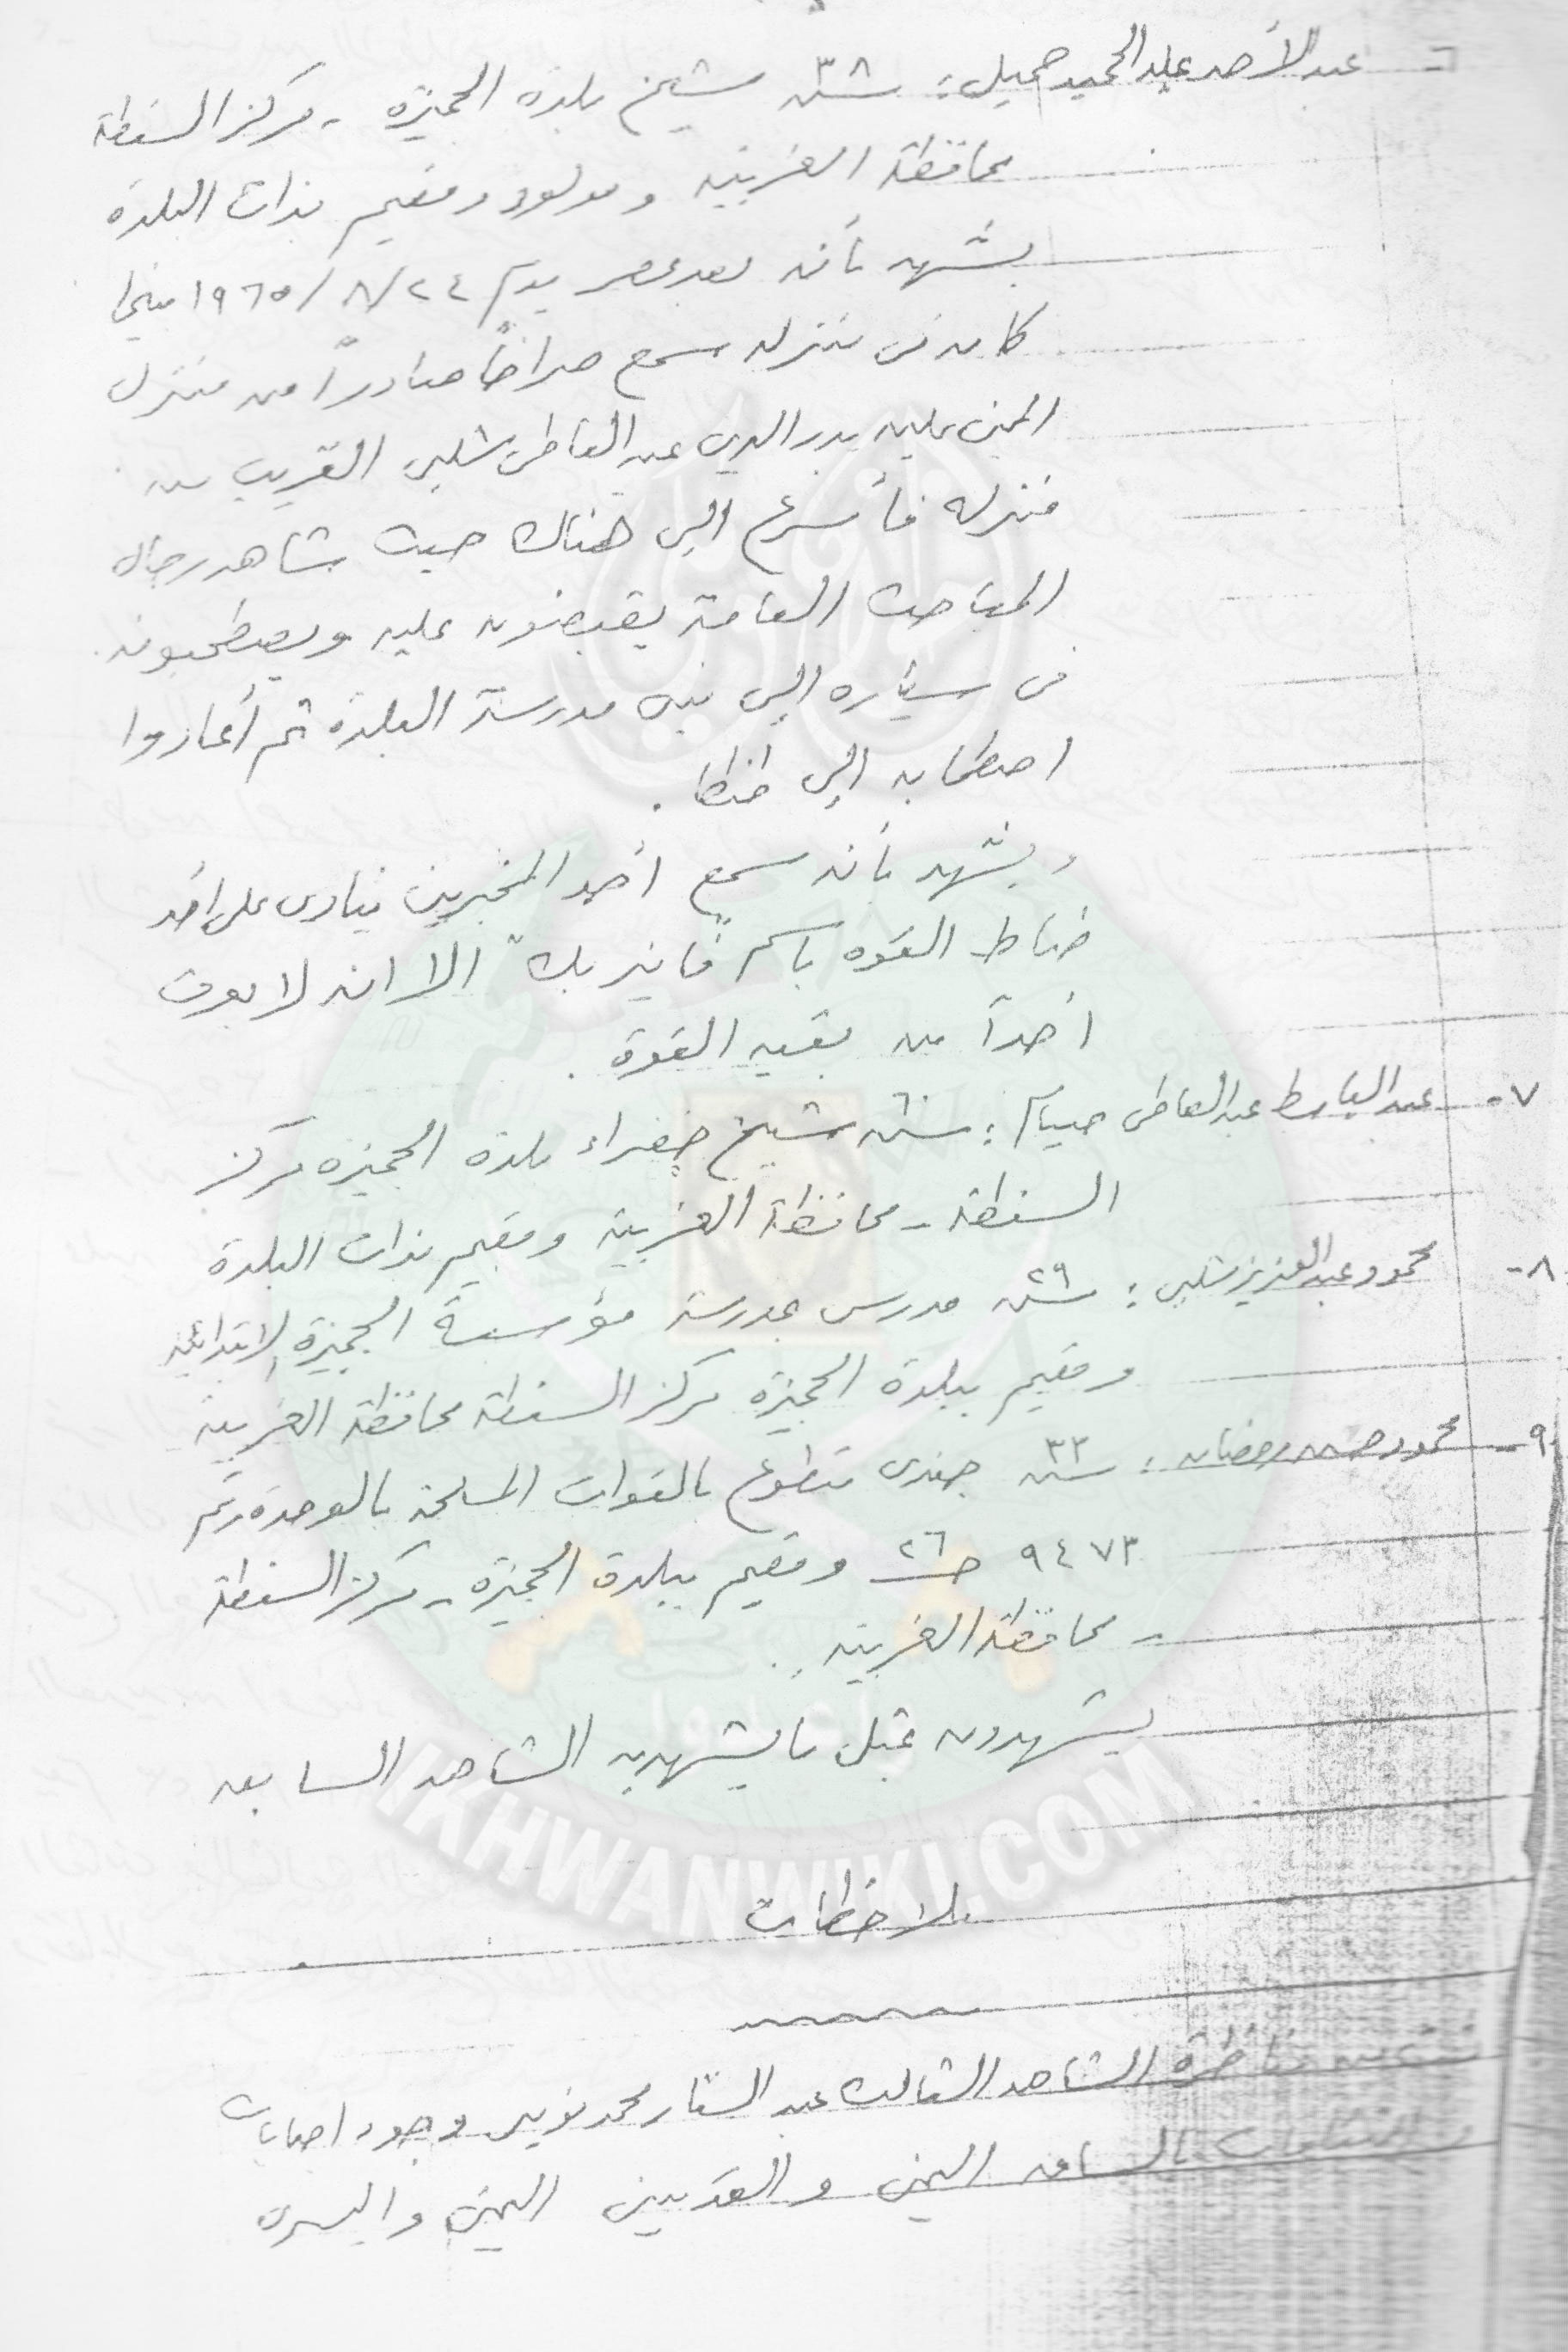 ٦- عبد الأحد عبد الحميد جميل: سنه ٣٨ شيخ بلدة الجميزه - مركز السنطة
محافظة الغربيه ومولود ومقيم بذات البلدة
يشهد بأنه بعد عصر يوم ٢٤/٨/١٩٦٥ بينما
كان فى منزله سمع صراخاً صادراً من منزل
المجنى عليه بدر الدين عبد العاطى شلبى القريب من
منزله فأسرع إلى هناك حيث شاهد رجال
المباحث العامة يقبضون عليه ويصطحبونه
فى سياره إلى مبنى مدرسة البلدة ثم أعادوا
اصطحابه إلى طنطا .
ويشهد بأنه سمع أحد المخبرين ينادى على أحد
ضباط القوه باسم "فايز بك" الا انه لا يعرف
أحداً من بقيه القوة .
٧- عبد الباسط عبد العاطى صيام: سنه ٦٠ شيخ خفراء بلدة الجميزه مركز
السنطة - محافظة الغربية ومقيم بذات البلدة
٨- محمود عبد العزيز شلبى: سنه ٢٩ مدرس بمدرسة مؤسسة الجميزة الابتدائية
ومقيم ببلدة الجميزة مركز السنطة محافظة الغربية
٩- محمود حسن رمضان: سنه ٣٣ جندى متطوع بالقوات المسلحة بالوحدة رقم
٩٤٧٣ ٢٦ ومقيم ببلدة الجميزه - مركز السنطة
- محافظة الغربية .
يشهدون بمثل ما يشهد به الشاهد السابق
ملاحظات
مناظرة الشاهد الثالث عبد الستار محمد نويس وجود اصابات
بالساق اليمنى والقدمين اليمنى واليسرى
IKHWANWIKI.COM